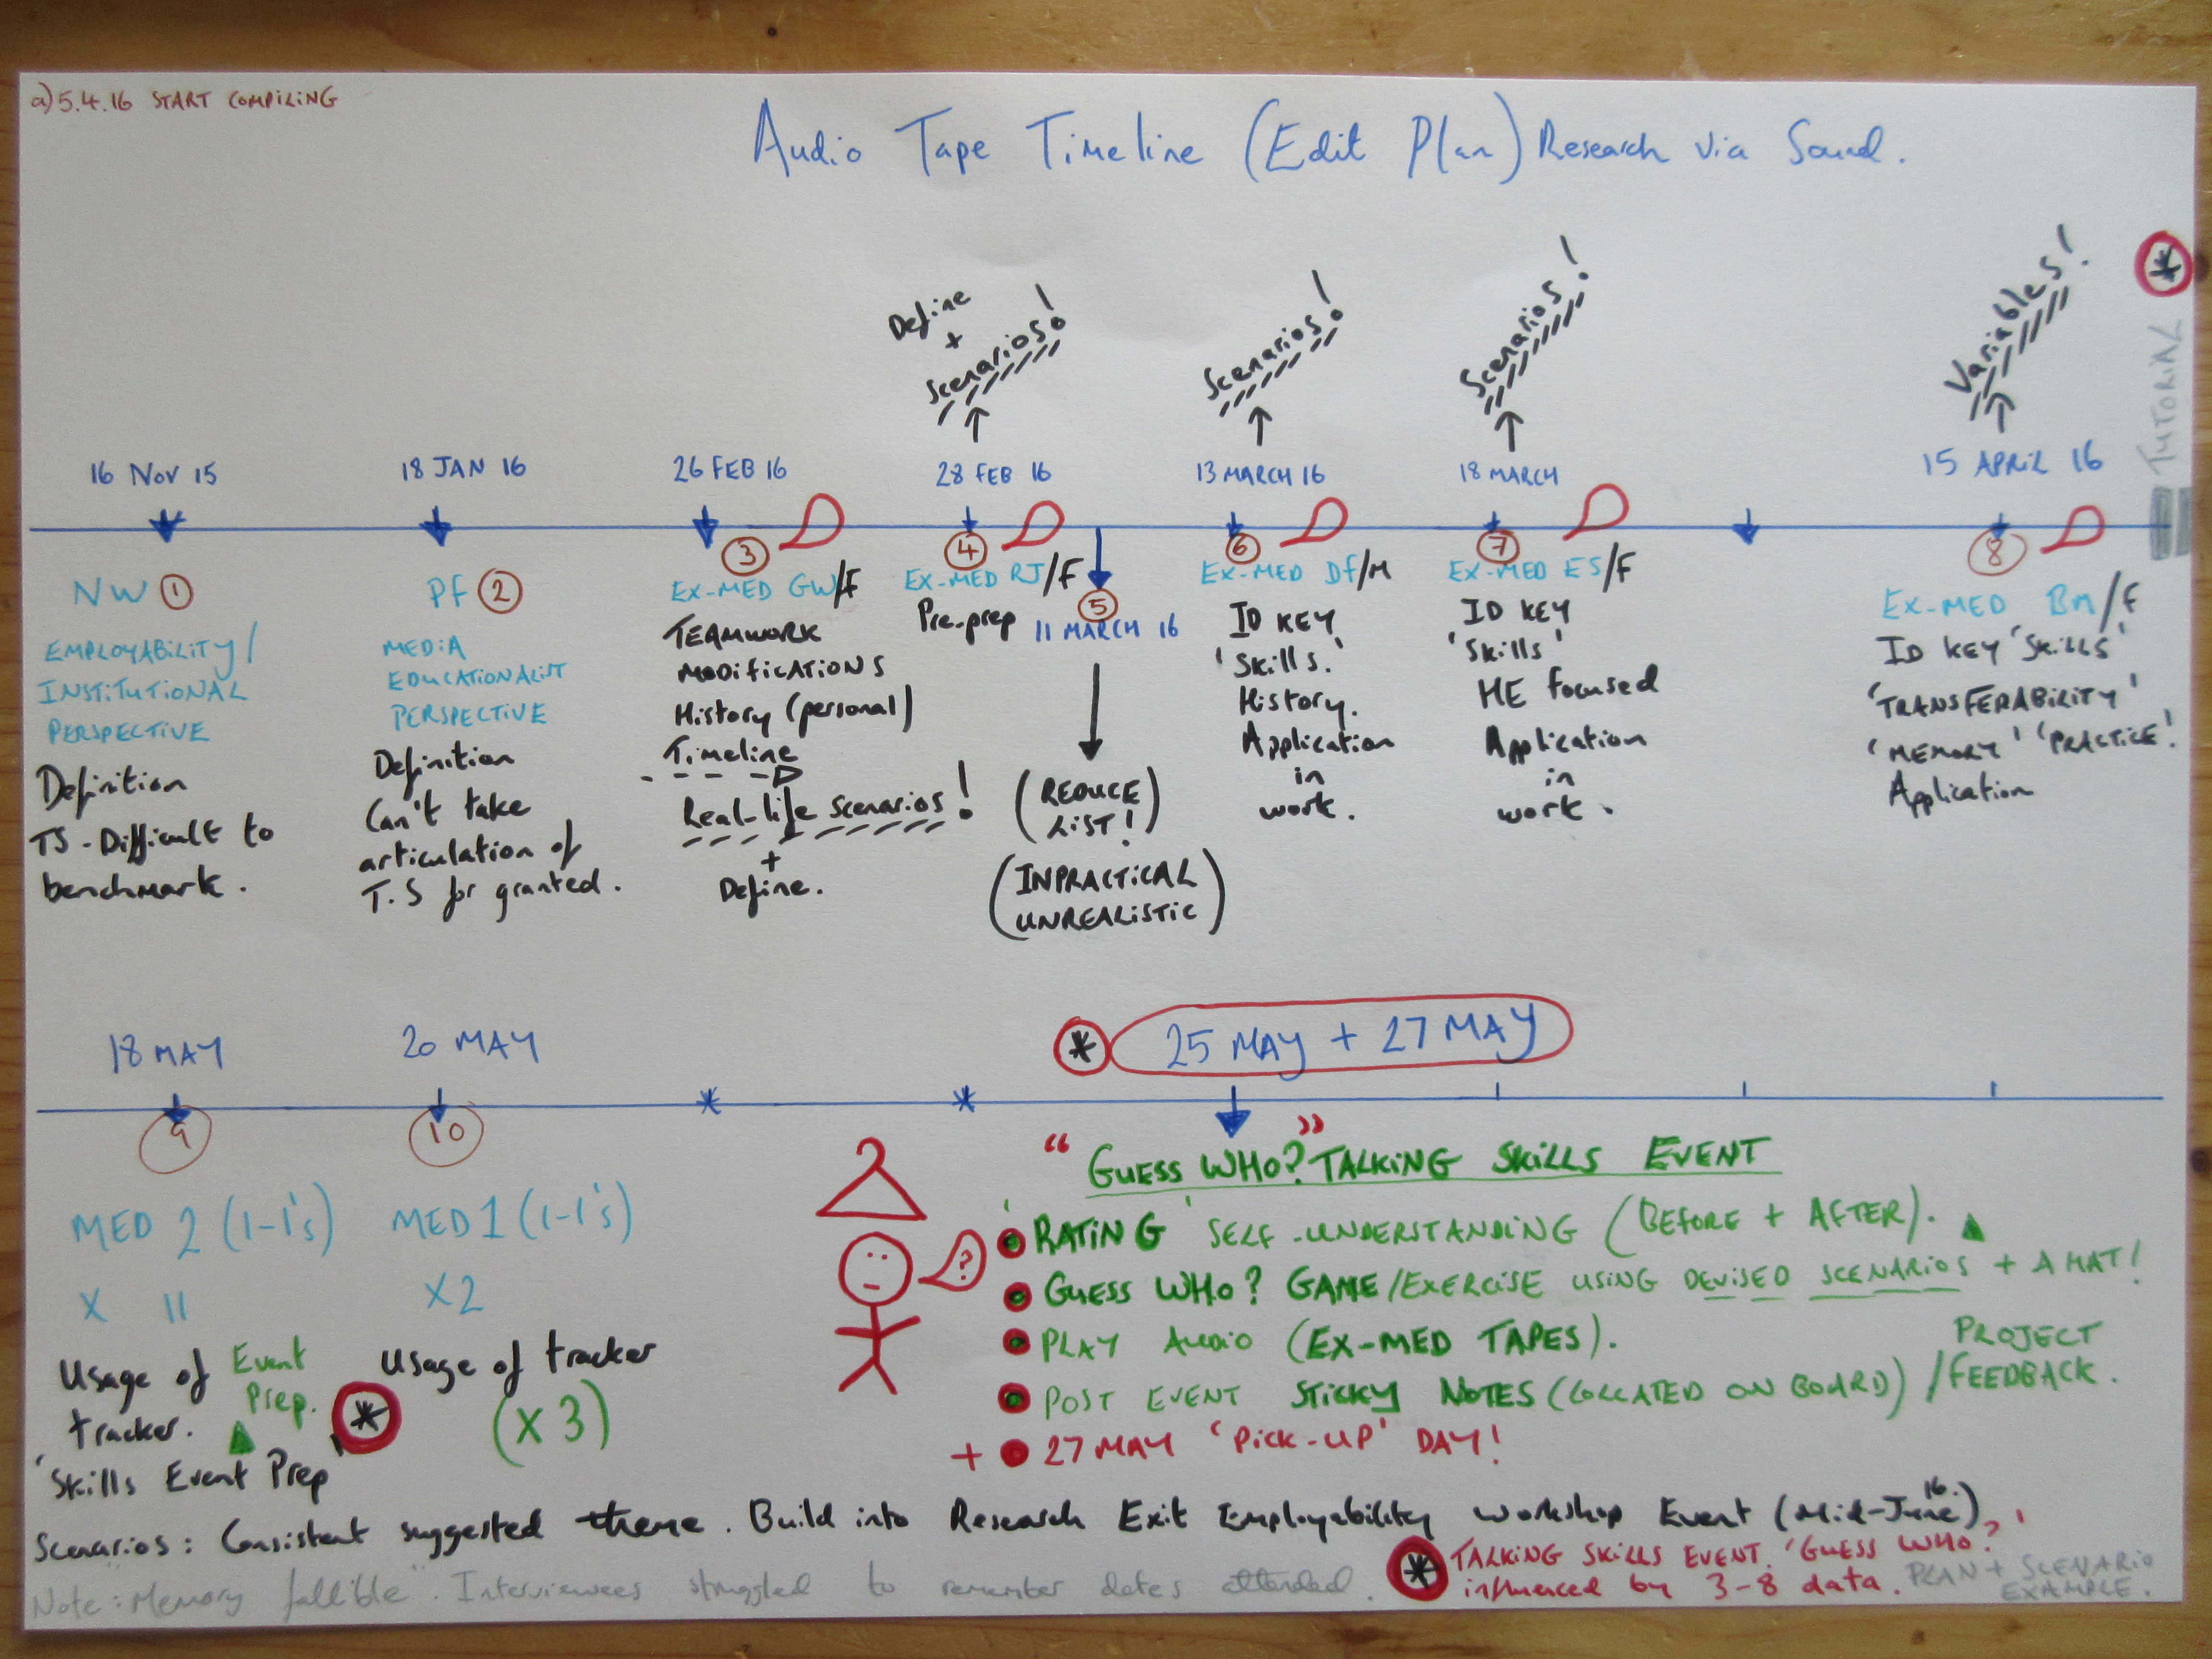 a) 5.4.16 START COMPILING
Audio Tape Timeline (Edit Plan) Research via Sound.
Define
+
Scenarios!
Scenarios!
Scenarios!
Variables!
*
TUTORIAL
16 NOV 15
18 JAN 16
26 FEB 16
28 FEB 16
13 MARCH 16
18 MARCH
15 APRIL 16
NW 1
EMPLOYABILITY/
INSTITUTIONAL
PERSPECTIVE
Definition
TS - Difficult to
benchmark.
PF 2
MEDIA
EDUCATIONALIST
PERSPECTIVE
Definition
Can't take
articulation of
T.S for granted.
3
EX-MED GW/F
TEAMWORK
MODIFICATIONS
History (personal)
Timeline
Real-life scenarios!
+
Define.
4
EX-MED RJ/F
Pre-prep
5
11 MARCH 16
(REDUCE
LIST!)
(INPRACTICAL
UNREALISTIC)
6
EX-MED DF/M
ID KEY
'Skills.'
History.
Application
in
work.
7
EX-MED ES/F
ID KEY
'Skills'
HE focused
Application
in
work.
8
EX-MED BM/F
ID KEY 'SKILLS'
'TRANSFERABILITY'
'MEMORY' 'PRACTICE!'
Application
18 MAY
20 MAY
* 25 MAY + 27 MAY
9
MED 2 (1-1's)
X 11
Usage of
tracker.
Event
Prep.
'Skills Event Prep'
*
10
MED 1 (1-1's)
X2
Usage of tracker
(X 3)
?
"GUESS WHO?" TALKING SKILLS EVENT
'RATING' SELF-UNDERSTANDING (BEFORE + AFTER).
GUESS WHO? GAME/EXERCISE USING DEVISED SCENARIOS + A HAT!
PLAY AUDIO (EX-MED TAPES).
POST EVENT STICKY NOTES (COLLATED ON BOARD) / PROJECT
FEEDBACK.
+ 27 MAY 'PICK-UP' DAY!
Scenarios: Consistent suggested theme. Build into Research Exit Employability Workshop Event (Mid-June 16.)
* TALKING SKILLS EVENT. 'GUESS WHO?'
influenced by 3-8 data.
PLAN + SCENARIO
EXAMPLE.
Note: "Memory fallible". Interviewees struggled to remember dates attended.